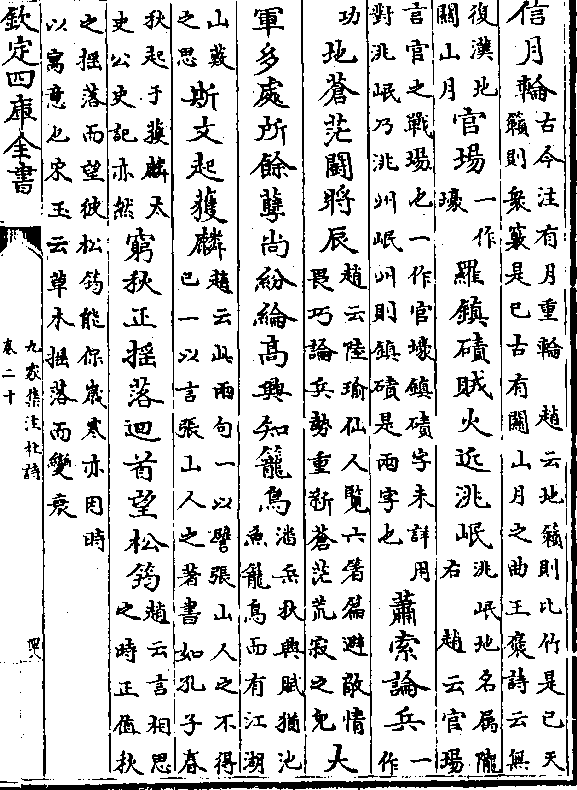 信月輪古今注有月重輪 趙云地籟則比竹是已天籟則衆竅是已古有關山月之曲王褒詩云無
復漢地關山月官場一作壕羅鎮磧賊火近洮岷洮岷地名屬隴右 趙云官場
言官之戰場也一作官壕鎮磧字未詳用對洮岷乃洮州岷州則鎮磧是兩字也蕭索論兵一作
功地蒼茫鬭將辰趙云陸瑜仙人覽六箸篇避敵情畏巧論兵勢重新蒼茫荒寂之皃大
軍多處所餘孽尚紛綸高興知籠鳥潘岳秋興賦猶池魚籠鳥而有江湖
山藪之思斯文起獲麟趙云此兩句一以譬張山人之不得已一以言張山人之著書如孔子春
秋起于獲麟太史公史記亦然窮秋正搖落迴首望松筠趙云言相思之時正值秋
之搖落而望彼松筠能保歲寒亦因時以寓意也宋玉云草木搖落而變衰
欽定四庫全書
九家集注杜詩
卷二十